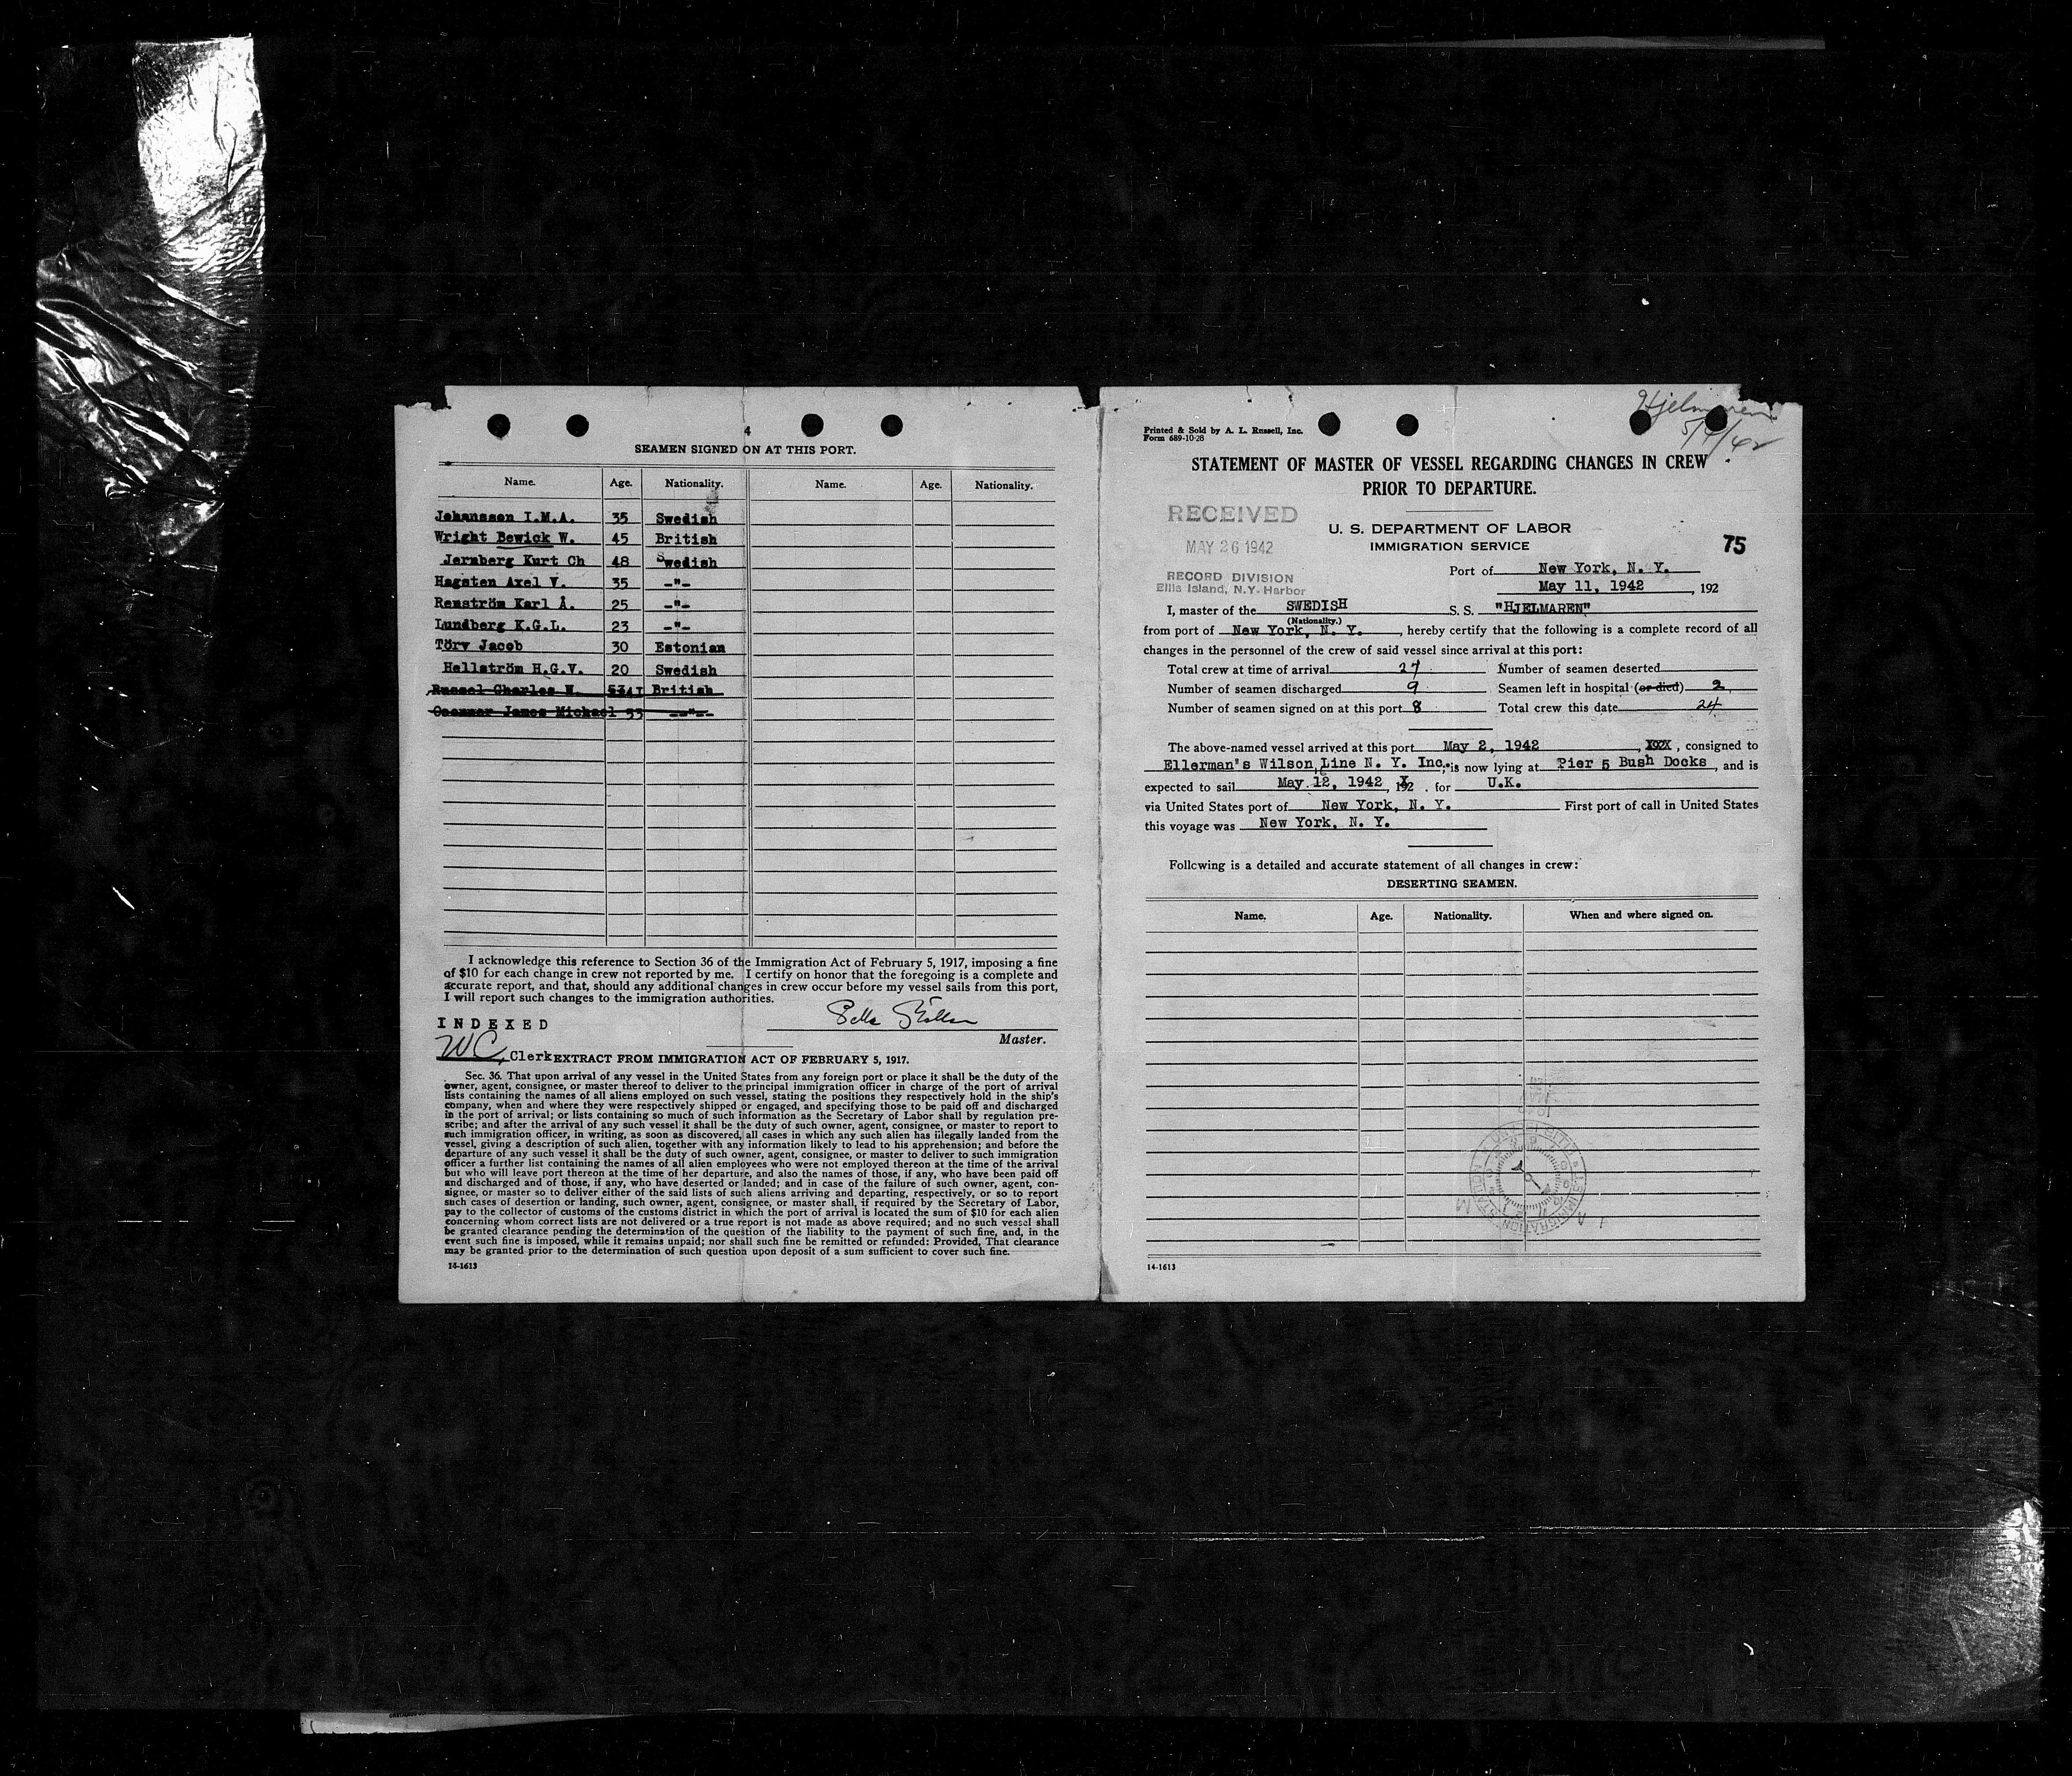 4
SEAMEN SIGNED ON AT THIS PORT.
Name. Age. Nationality. Name. Age. Nationality.
Johansson I.M.A. 35 Swedish
Wright Bewick W. 45 British
Jernberg Kurt Ch 48 Swedish
Hagsten Axel V. 35 -"-
Renström Karl Å. 25 -"-
Lundberg K.G.L. 23 -"-
Törv Jacob 30 Estonian
Hellström H.G.V. 20 Swedish
Russel Charles W. British
James Michael 53 --"--
I acknowledge this reference to Section 36 of the Immigration Act of February 5, 1917, imposing a fine
of $10 for each change in crew not reported by me. I certify on honor that the foregoing is a complete and
accurate report, and that, should any additional changes in crew occur before my vessel sails from this port,
I will report such changes to the immigration authorities.
INDEXED
Master.
WC, Clerk EXTRACT FROM IMMIGRATION ACT OF FEBRUARY 5, 1917.
Sec. 36. That upon arrival of any vessel in the United States from any foreign port or place it shall be the duty of the
owner, agent, consignee, or master thereof to deliver to the principal immigration officer in charge of the port of arrival
lists containing the names of all aliens employed on such vessel, stating the positions they respectively hold in the ship's
company, when and where they were respectively shipped or engaged, and specifying those to be paid off and discharged
in the port of arrival; or lists containing so much of such information as the Secretary of Labor shall by regulation pre-
scribe; and after the arrival of any such vessel it shall be the duty of such owner, agent, consignee, or master to report to
such immigration officer, in writing, as soon as discovered, all cases in which any such alien has illegally landed from the
vessel, giving a description of such alien, together with any information likely to lead to his apprehension; and before the
departure of any such vessel it shall be the duty of such owner, agent, consignee, or master to deliver to such immigration
officer a further list containing the names of all alien employees who were not employed thereon at the time of the arrival
but who will leave port thereon at the time of her departure, and also the names of those, if any, who have been paid off
and discharged and of those, if any, who have deserted or landed; and in case of the failure of such owner, agent, con-
signee, or master so to deliver either of the said lists of such aliens arriving and departing, respectively, or so to report
such cases of desertion or landing, such owner, agent, consignee, or master shall, if required by the Secretary of Labor,
pay to the collector of customs of the customs district in which the port of arrival is located the sum of $10 for each alien
concerning whom correct lists are not delivered or a true report is not made as above required; and no such vessel shall
be granted clearance pending the determination of the question of the liability to the payment of such fine, and, in the
event such fine is imposed, while it remains unpaid; nor shall such fine be remitted or refunded: Provided, That clearance
may be granted prior to the determination of such question upon deposit of a sum sufficient to cover such fine.
14-1613
Hjelmaren
Printed & Sold by A. L. Russell, Inc.
Form 689-10-28
STATEMENT OF MASTER OF VESSEL REGARDING CHANGES IN CREW
PRIOR TO DEPARTURE.
RECEIVED
MAY 26 1942
RECORD DIVISION
Ellis Island, N.Y. Harbor
U. S. DEPARTMENT OF LABOR
IMMIGRATION SERVICE
75
Port of New York, N. Y.
May 11, 1942, 192
I, master of the SWEDISH S. S. "HJELMAREN"
(Nationality.)
from port of New York, N. Y., hereby certify that the following is a complete record of all
changes in the personnel of the crew of said vessel since arrival at this port:
Total crew at time of arrival 27 Number of seamen deserted
Number of seamen discharged 9 Seamen left in hospital (or died) 2
Number of seamen signed on at this port 8 Total crew this date 24
The above-named vessel arrived at this port May 2, 1942, consigned to
Ellerman's Wilson Line N. Y. Inc., is now lying at Pier 5 Bush Docks, and is
expected to sail May 12, 1942, 192 . for U.K.
via United States port of New York, N. Y. First port of call in United States
this voyage was New York, N. Y.
Following is a detailed and accurate statement of all changes in crew:
DESERTING SEAMEN.
Name. Age. Nationality. When and where signed on.
14-1613